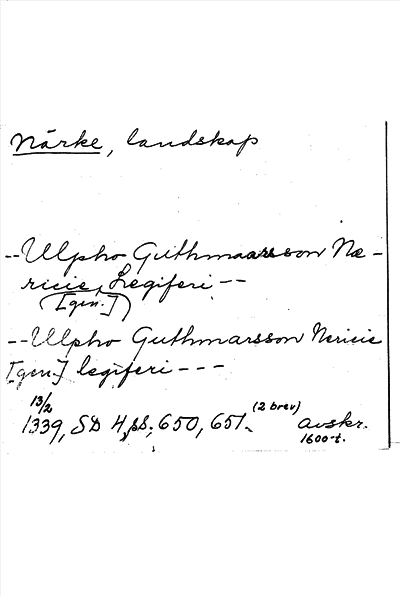 Närke, landskap
-- Ulpho Guthmaarsson Næ-
ricie, Legiferi --
[gen.]
-- Ulpho Guthmarsson Nericie
[gen.] legiferi ---
13/2
1339, SD 4, ss. 650, 651. (2 brev) avskr.
1600-t.